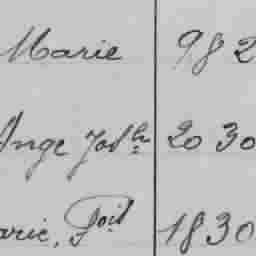 Marie 982
Ange Josh 20 30
arie, 1830